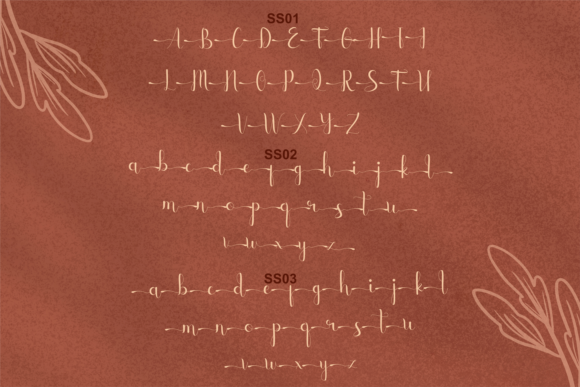 SS01
A B C D E F G H I J
L M N O P Q R S T U
V W X Y Z
SS02
a b c d e f g h i j k l
m n o p q r s t u
v w x y z
SS03
a b c d e f g h i j k l
m n o p q r s t u
v w x y z